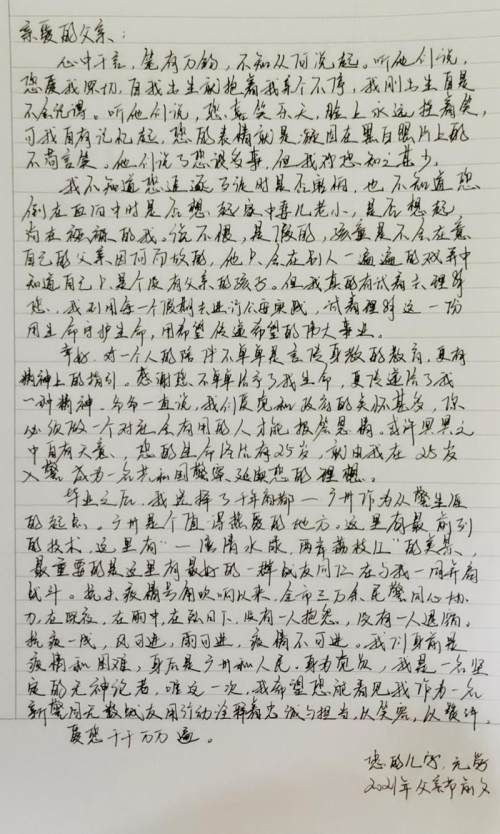 亲爱的父亲：
心中千言，笔有万钧，不知从何说起。听他们说，
您爱我深切，自我出生就抱着我亲个不停，我刚出生自是
不会记得。听他们说，您喜笑乐天，脸上永远挂着笑，
可我自有记忆起，您的表情就是凝固在黑白照片上的
不苟言笑。他们说了您很多事，但我对您知之甚少。
我不知道您追逐歹徒时是否害怕，也不知道您
倒在血泊中时是否想起家中妻儿老小，是否想起
尚在襁褓的我。说不恨，是假的，孩童是不会在意
自己的父亲因何而故的，他只会在别人一遍遍的叹息中
知道自己只是个没有父亲的孩子。但我真的有试着去理解
您，我利用每一个假期去进行公安实践，试着理解这一份
用生命守护生命，用希望传递希望的伟大事业。
幸好，对一个人的陪伴不单单是言传身教的教育，更有
精神上的指引。感谢您不单单给予了我生命，更传递给了我
一种精神。爷爷一直说，我们受党和政府的关怀甚多，你
必须做一个对社会有用的人才能报答恩情。或许冥冥之
中自有天意，您的生命终结在25岁，就由我在25岁
入警，成为一名共和国警察，延续您的理想。
毕业之后，我选择了千年商都——广州作为从警生涯
的起点。广州是个值得热爱的地方，这里有最前列
的技术，这里有“一湾清水绿，两岸荔枝红”的美景，
最重要的是这里有最好的一群战友同仁在与我一同并肩
战斗。抗击疫情号角吹响以来，全市三万余民警同心协
力，在深夜，在雨中，在烈日下，没有一人抱怨，没有一人退缩。
抗疫一线，风可进，雨可进，疫情不可进。我们身前是
疫情和困难，身后是广州和人民。身为党员，我是一名坚
定的无神论者，唯这一次，我希望您能看见我作为一名
新警同无数战友用行动诠释着忠诚与担当，以笑容，以赞许。
爱您千千万万遍。
您的儿子，元
2021年父亲节前夕